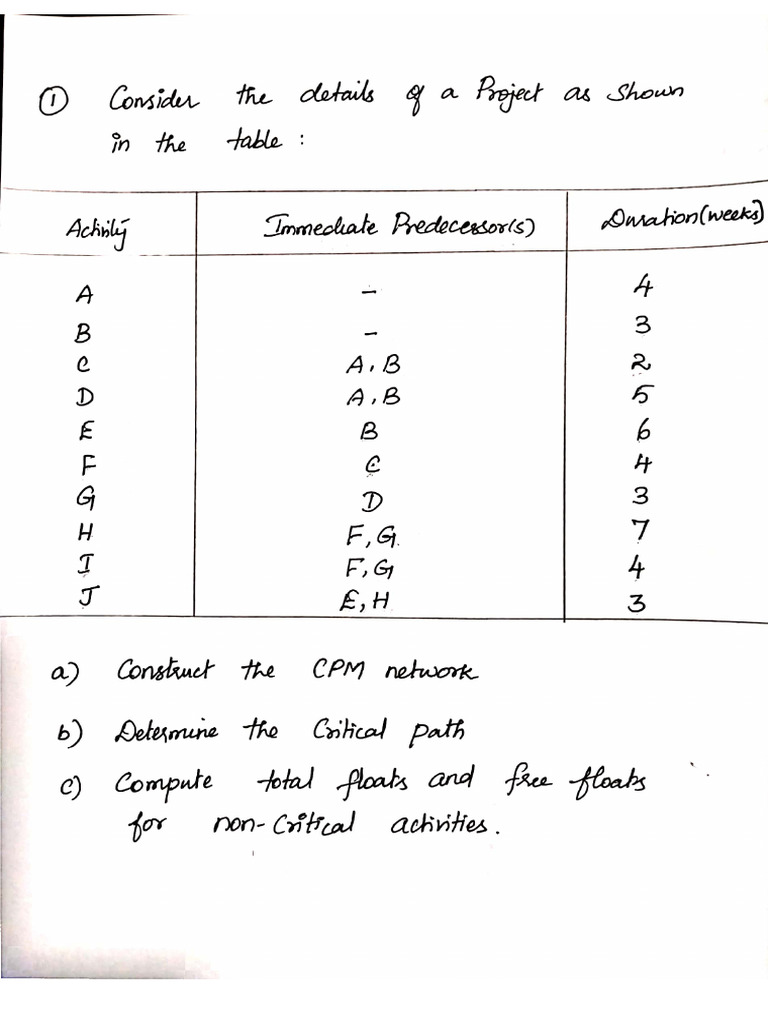 ① Consider the details of a Project as shown
in the table :
Activity Immediate Predecessor(s) Duration (weeks)
A - 4
B - 3
C A, B 2
D A, B 5
E B 6
F C 4
G D 3
H F, G 7
I F, G 4
J E, H 3
a) Construct the CPM network
b) Determine the Critical path
c) Compute total floats and free floats
for non-Critical activities.